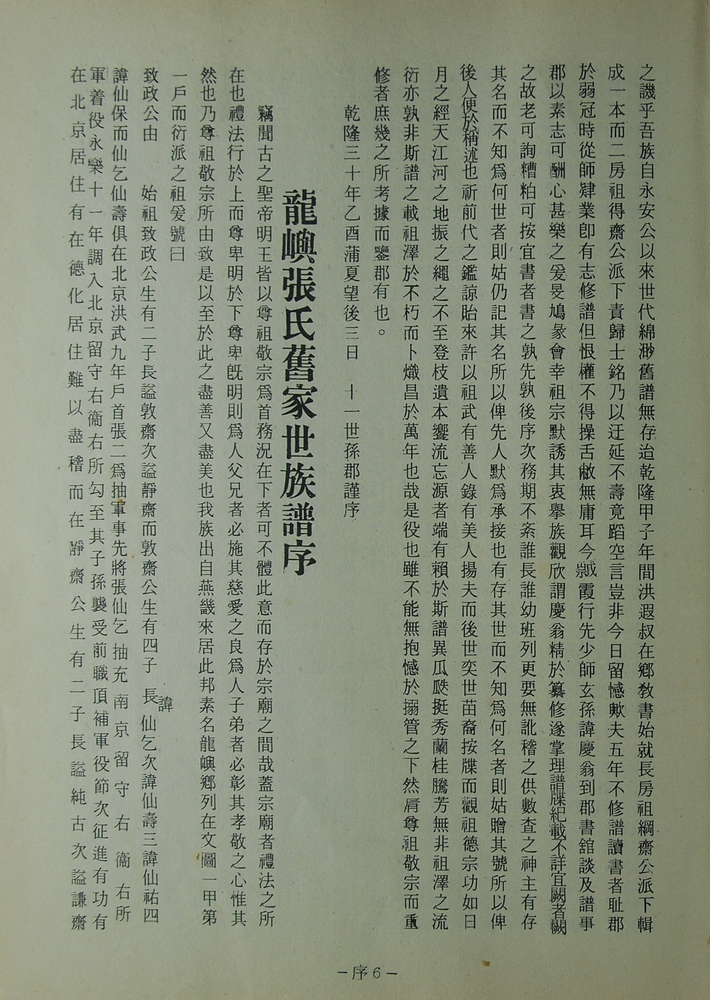 之譏乎吾族自永安公以來世代綿渺舊譜無存迨乾隆甲子年間洪遐叔在鄉敎書始就長房祖綱齋公派下輯
成一本而二房祖得齋公派下責歸士銘乃以迂延不壽竟蹈空言豈非今日留憾歟夫五年不修譜讀書者耻郡
於弱冠時從師肄業卽有志修譜但恨權不得操舌敝無庸耳今霞行先少師玄孫諱慶翁到郡書舘談及譜事
郡以素志可酬心甚樂之爰旻鳩彖會幸祖宗默誘其衷擧族觀欣謂慶翁精於纂修遂掌理譜牒紀載不詳宜闕者闕
之故老可詢糟粕可按宜書者書之孰先孰後序次務期不紊誰長誰幼班列更要無訛稽之供數查之神主有存
其名而不知爲何世者則姑仍記其名所以俾先人默爲承接也有存其世而不知爲何名者則姑贈其號所以俾
後人便於稱述也祈前代之鑑諒貽來許以祖武有善人錄有美人揚夫而後世奕世苗裔按牒而觀祖德宗功如日
月之經天江河之地振之繩之不至登枝遺本饗流忘源者端有賴於斯譜異瓜瓞挺秀蘭桂騰芳無非祖澤之流
衍亦孰非斯譜之載祖澤於不朽而卜熾昌於萬年也哉是役也雖不能無抱憾於搦管之下然肩尊祖敬宗而重
修者庶幾之所考據而鑒郡有也。
乾隆三十年乙酉蒲夏望後三日　十一世孫郡謹序
龍嶼張氏舊家世族譜序
竊聞古之聖帝明王皆以尊祖敬宗爲首務況在下者可不體此意而存於宗廟之間哉蓋宗廟者禮法之所
在也禮法行於上而尊卑明於下尊卑旣明則爲人父兄者必施其慈愛之良爲人子弟者必彰其孝敬之心惟其
然也乃尊祖敬宗所由致是以至於此之盡善又盡美也我族出自燕畿來居此邦素名龍嶼鄉列在文圖一甲第
一戶而衍派之祖爰號曰
致政公由　始祖致政公生有二子長諡敦齋次諡靜齋而敦齋公生有四子　長諱仙乞次諱仙壽三諱仙祐四
諱仙保而仙乞仙壽俱在北京洪武九年戶首張二爲抽軍事先將張仙乞抽充南京留守右衞右所
軍着役永樂十一年調入北京留守右衞右所勾至其子孫襲受前職頂補軍役節次征進有功有
在北京居住有在德化居住難以盡稽而在靜齋公生有二子長諡純古次諡謙齋
－序6－